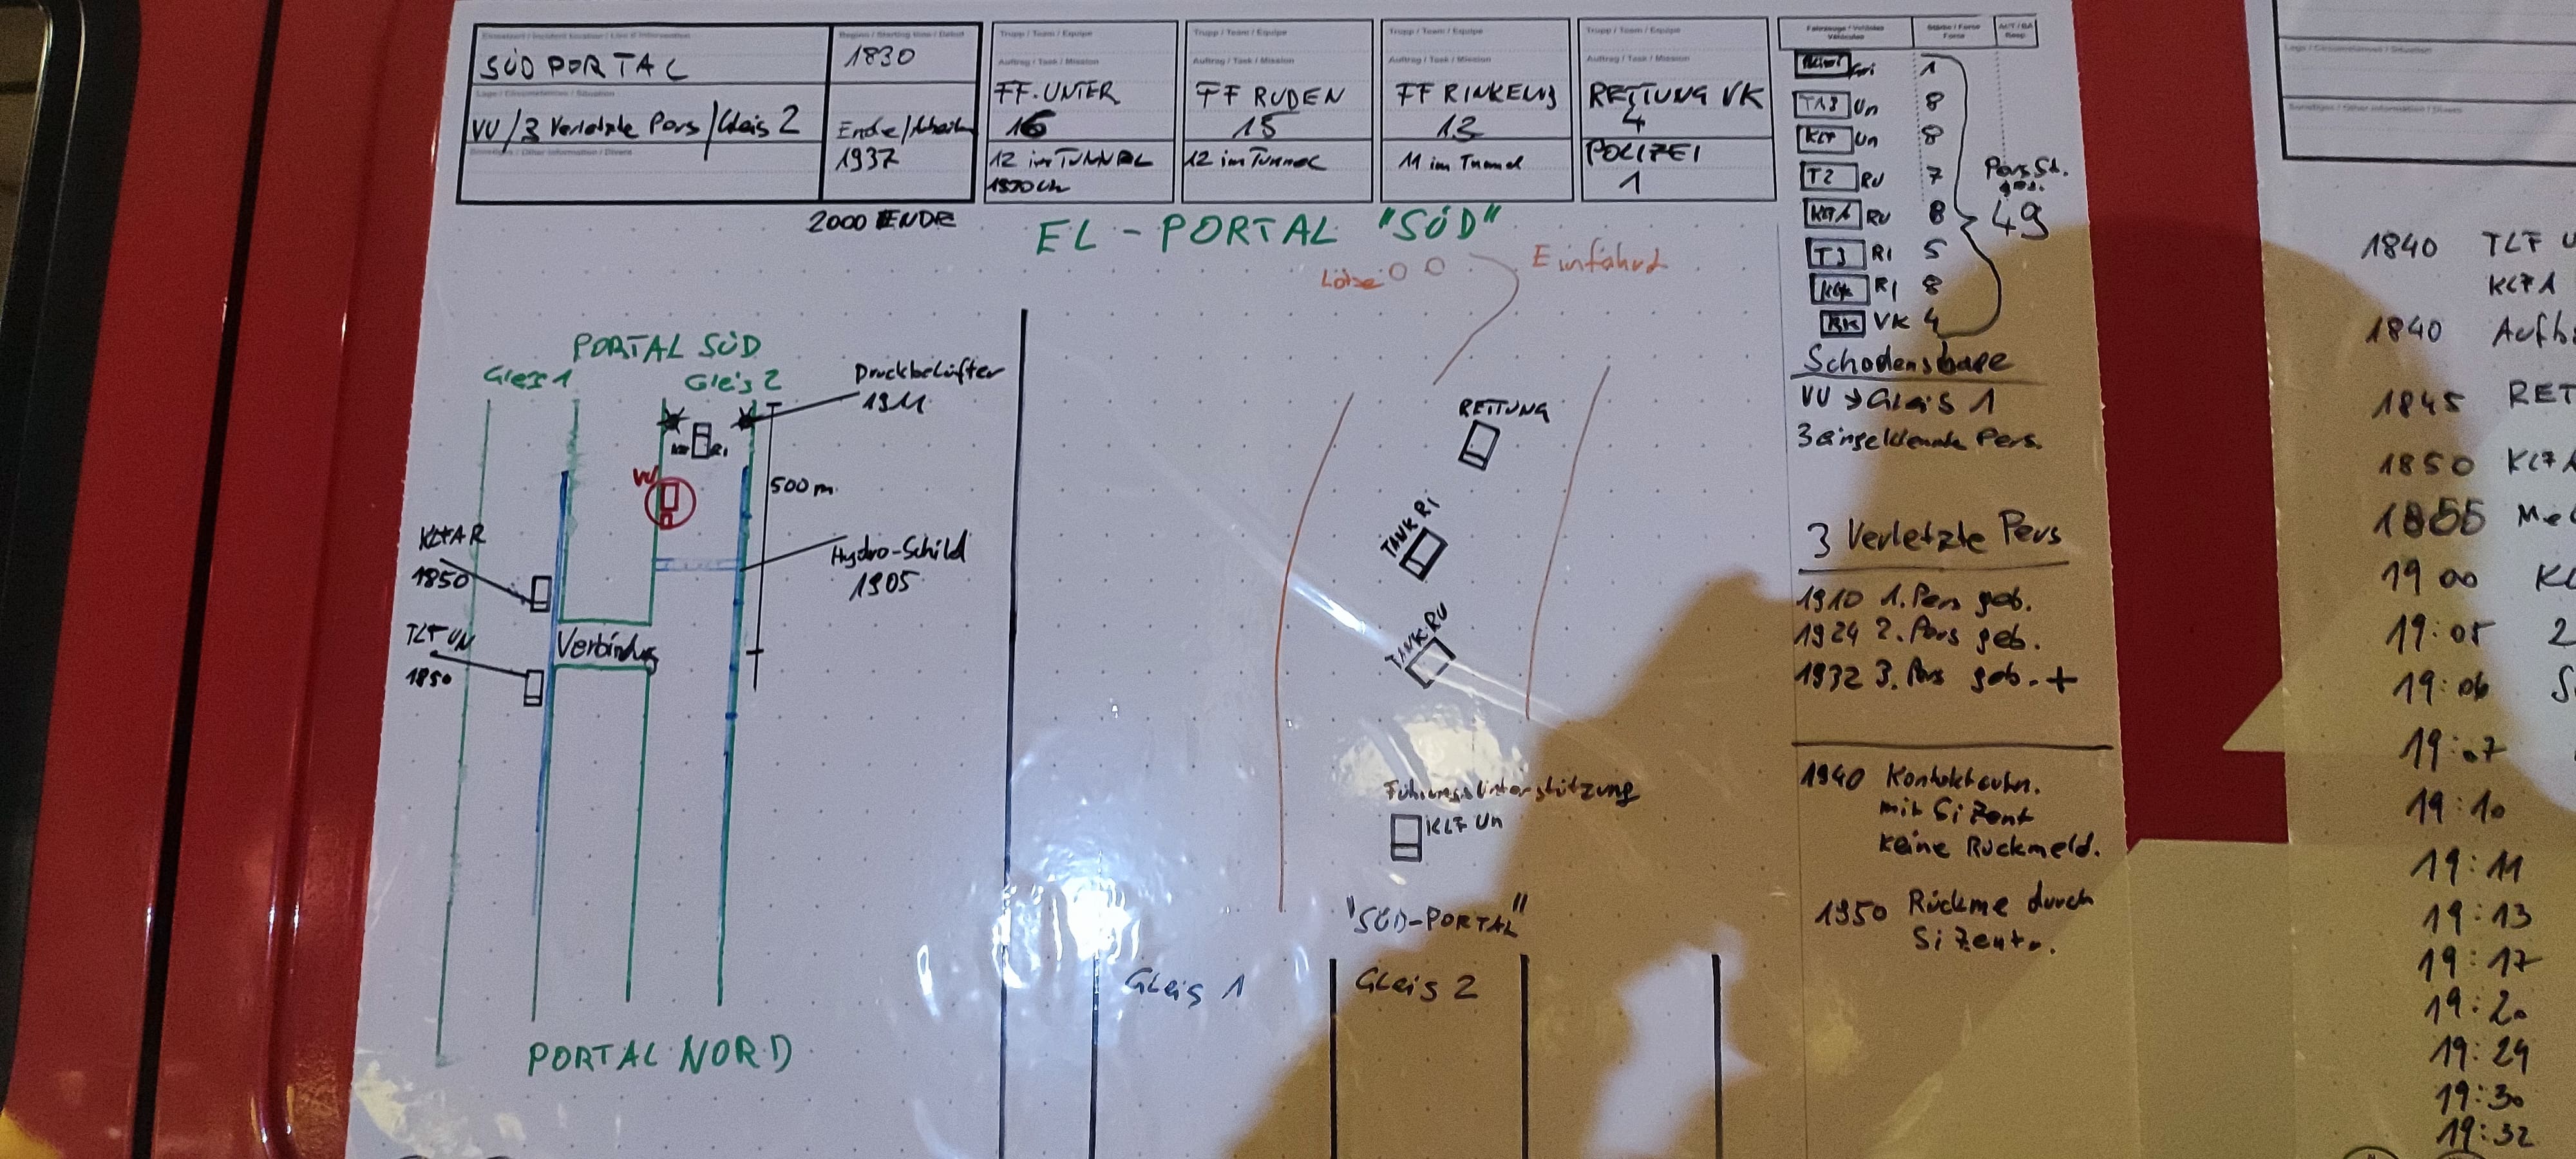 SÜDPORTAL
1830
VU/3 Verletzte Pers/Gleis 2
Ende/Arbeit
1937
2000 ENDE
Trupp / Team / Equipe
Auftrag / Task / Mission
FF. UNTER
16
12 im TUNNEL
Trupp / Team / Equipe
Auftrag / Task / Mission
FF RUDEN
15
12 im Tunnel
Trupp / Team / Equipe
Auftrag / Task / Mission
FF RINKENB
13
11 im Tunnel
Trupp / Team / Equipe
Auftrag / Task / Mission
RETTUNG VK
4
POLIZEI
1
Un 8
KLF Un 8
T2 RU 7
RU 8
T3 RI 5
RI 8
RK VK 4
Pers St.
ges.
49
EL - PORTAL "SÜD"
Lotse
Einfahrt
PORTAL SÜD
Gleis 1
Gleis 2
Druckbelüfter
1911
RI
VU
500 m
Hydro-Schild
1905
KLFA R
1850
TLF UN
1850
Verbindung
PORTAL NORD
RETTUNG
TANK RI
TANK RU
Führungsunterstützung
KLF Un
"SÜD-PORTAL"
Gleis 1
Gleis 2
Schadenslage
VU → Gleis 1
3 eingeklemmte Pers.
3 Verletzte Pers
1910 1. Pers geb.
1924 2. Pers geb.
1932 3. Pers geb. +
1940 Kontaktaufn.
mit SiZent
keine Rückmeld.
1950 Rückme durch
SiZentr.
1840 TLF U
KLFA
1840 Aufb
1845 RET
1850 KLFA
1855 Me
19 00 KL
19:05 2
19:06 S
19:07
19:10
19:11
19:13
19:17
19:20
19:29
19:30
19:32